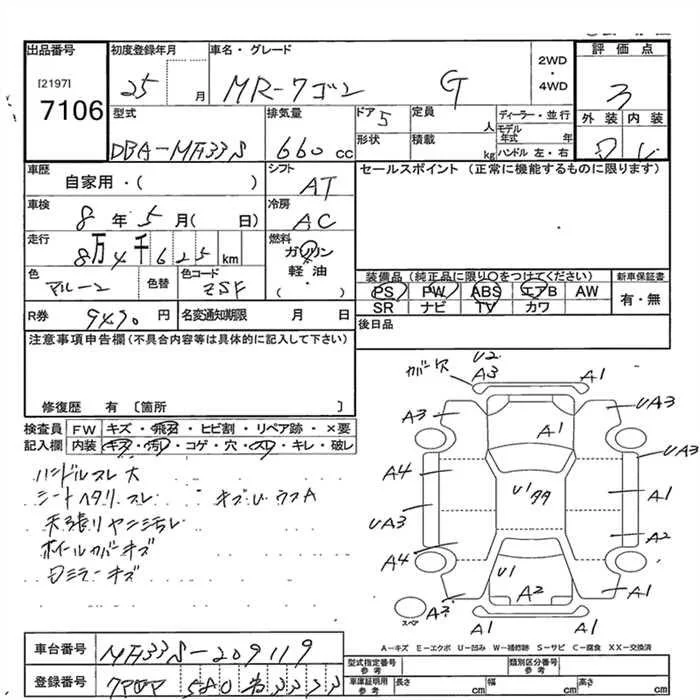 出品番号
[2197]
7106
初度登録年月
25 月
車名・グレード
MR-ワゴン G
2WD
・
4WD
評価点
3
外装 内装
型式
DBA-MF33S
排気量
660 cc
ドア 5
形状
定員 人
積載 kg
ディーラー・並行
モデル年式 年
ハンドル 左・右
車歴
自家用・( )
シフト
AT
セールスポイント (正常に機能するものに限ります)
車検
8年 5月( 日)
冷房
AC
走行
8万4千625 km
燃料
ガソリン
軽油
・( )
色
マルーン
色替
色コード
ZSF
装備品 (純正品に限り○をつけてください)
PS PW ABS エアB AW
SR ナビ TV カワ
新車保証書
有・無
R券
9490円
名変通知期限 月 日
後日品
注意事項申告欄(不具合内容等は具体的に記入して下さい)
修復歴 有 [箇所 ]
検査員記入欄
FW キズ・飛石・ヒビ割・リペア跡・×要
内装 キズ・汚レ・コゲ・穴・スレ・キレ・破レ
ハンドルスレ大
シートヘタリ スレ キズU ウスA
天張リヤニ汚レ
ホイールカバーキズ
ミラーキズ
カバー穴
U2
A3
A1
A3
A1
UA3
A4
UA3
U1
A1
UA3
A2
A4
U1
A2
A1
A3
スペア
A1
A1
A-キズ E-エクボ U-凹み W-補修跡 S-サビ C-腐食 XX-交換済
車台番号
MF33S-209119
登録番号
580 3333
型式指定番号
参考
類別区分番号
参考
車庫証明用
参考
長さ cm
幅 cm
高さ cm